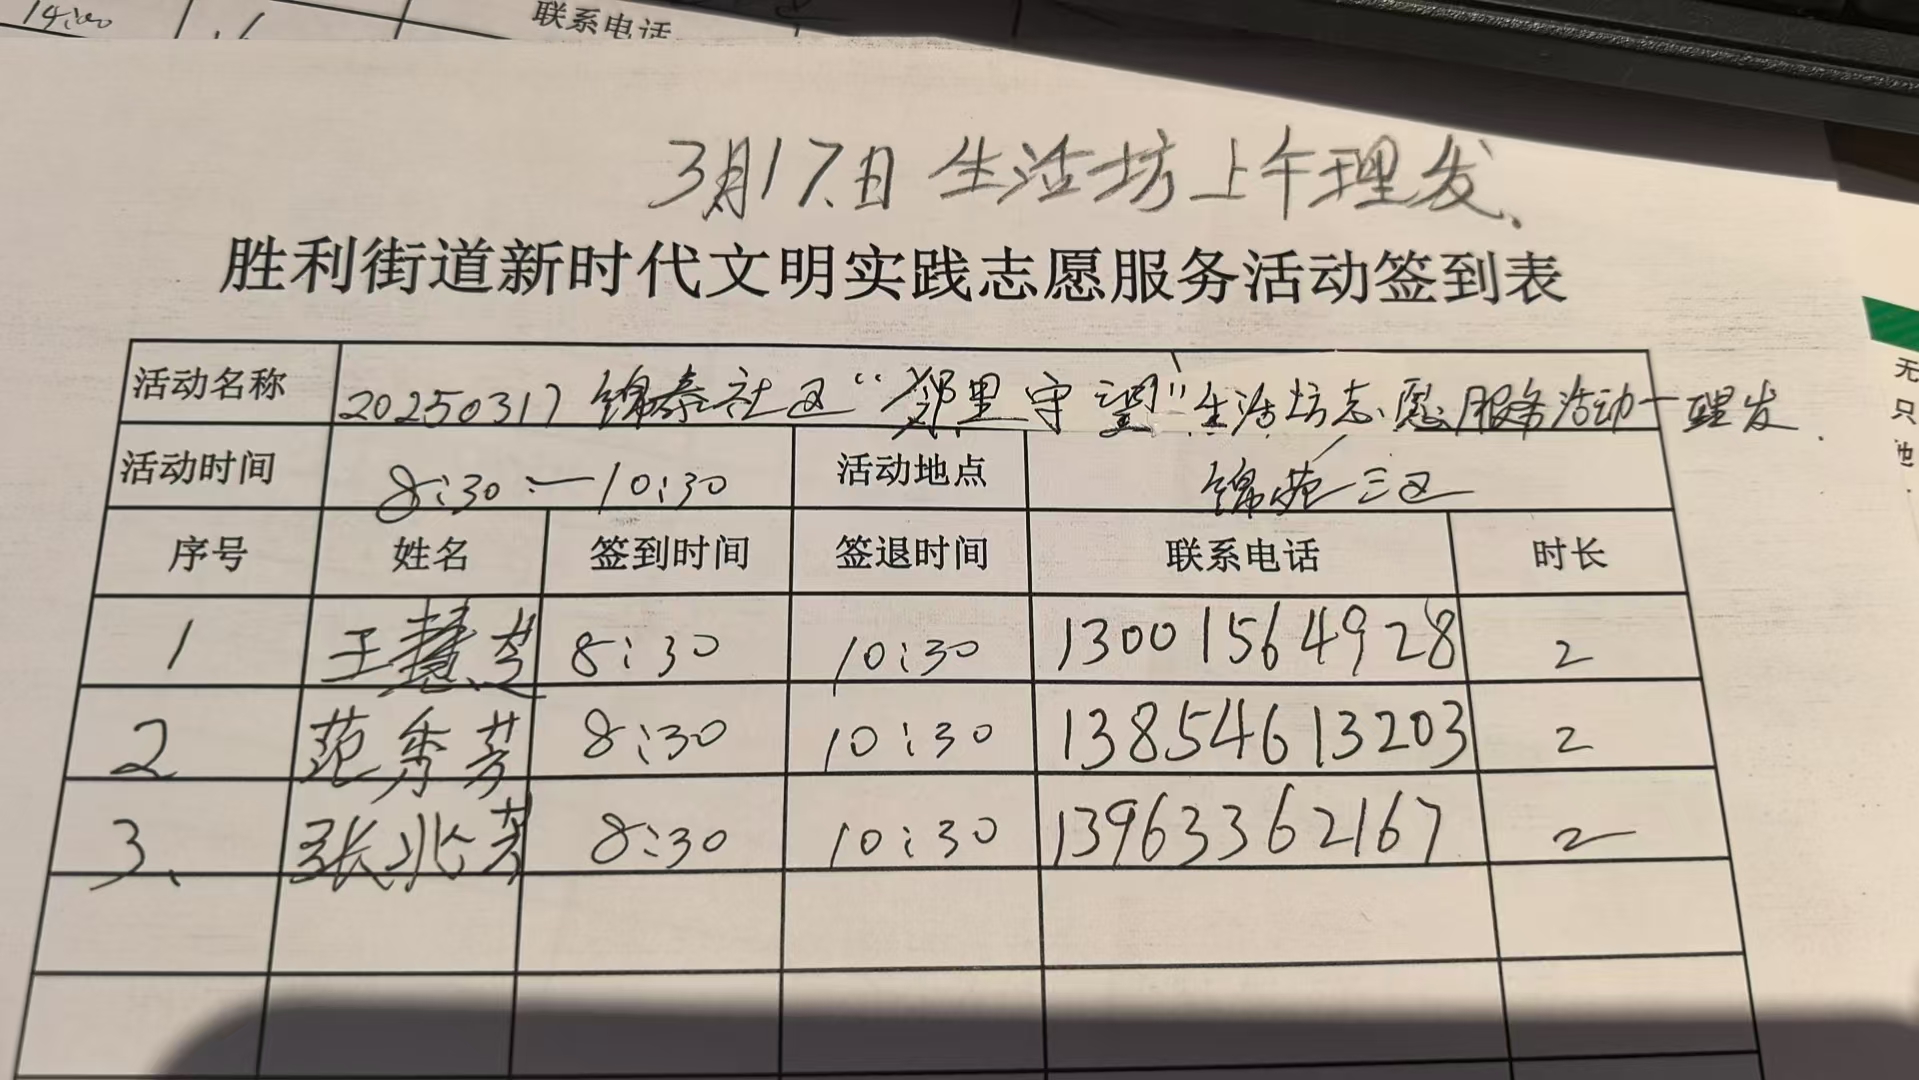 14:00 联系电话
3月17日 生活坊上午理发.
胜利街道新时代文明实践志愿服务活动签到表
活动名称 20250317 锦泰社区“邻里守望”生活坊志愿服务活动一理发.
活动时间 8:30 — 10:30 活动地点 锦苑三区
序号 姓名 签到时间 签退时间 联系电话 时长
1 王慧芝 8:30 10:30 13001564928 2
2 范秀芳 8:30 10:30 13854613203 2
3、 张兆芳 8:30 10:30 13963362167 2
无
只
他